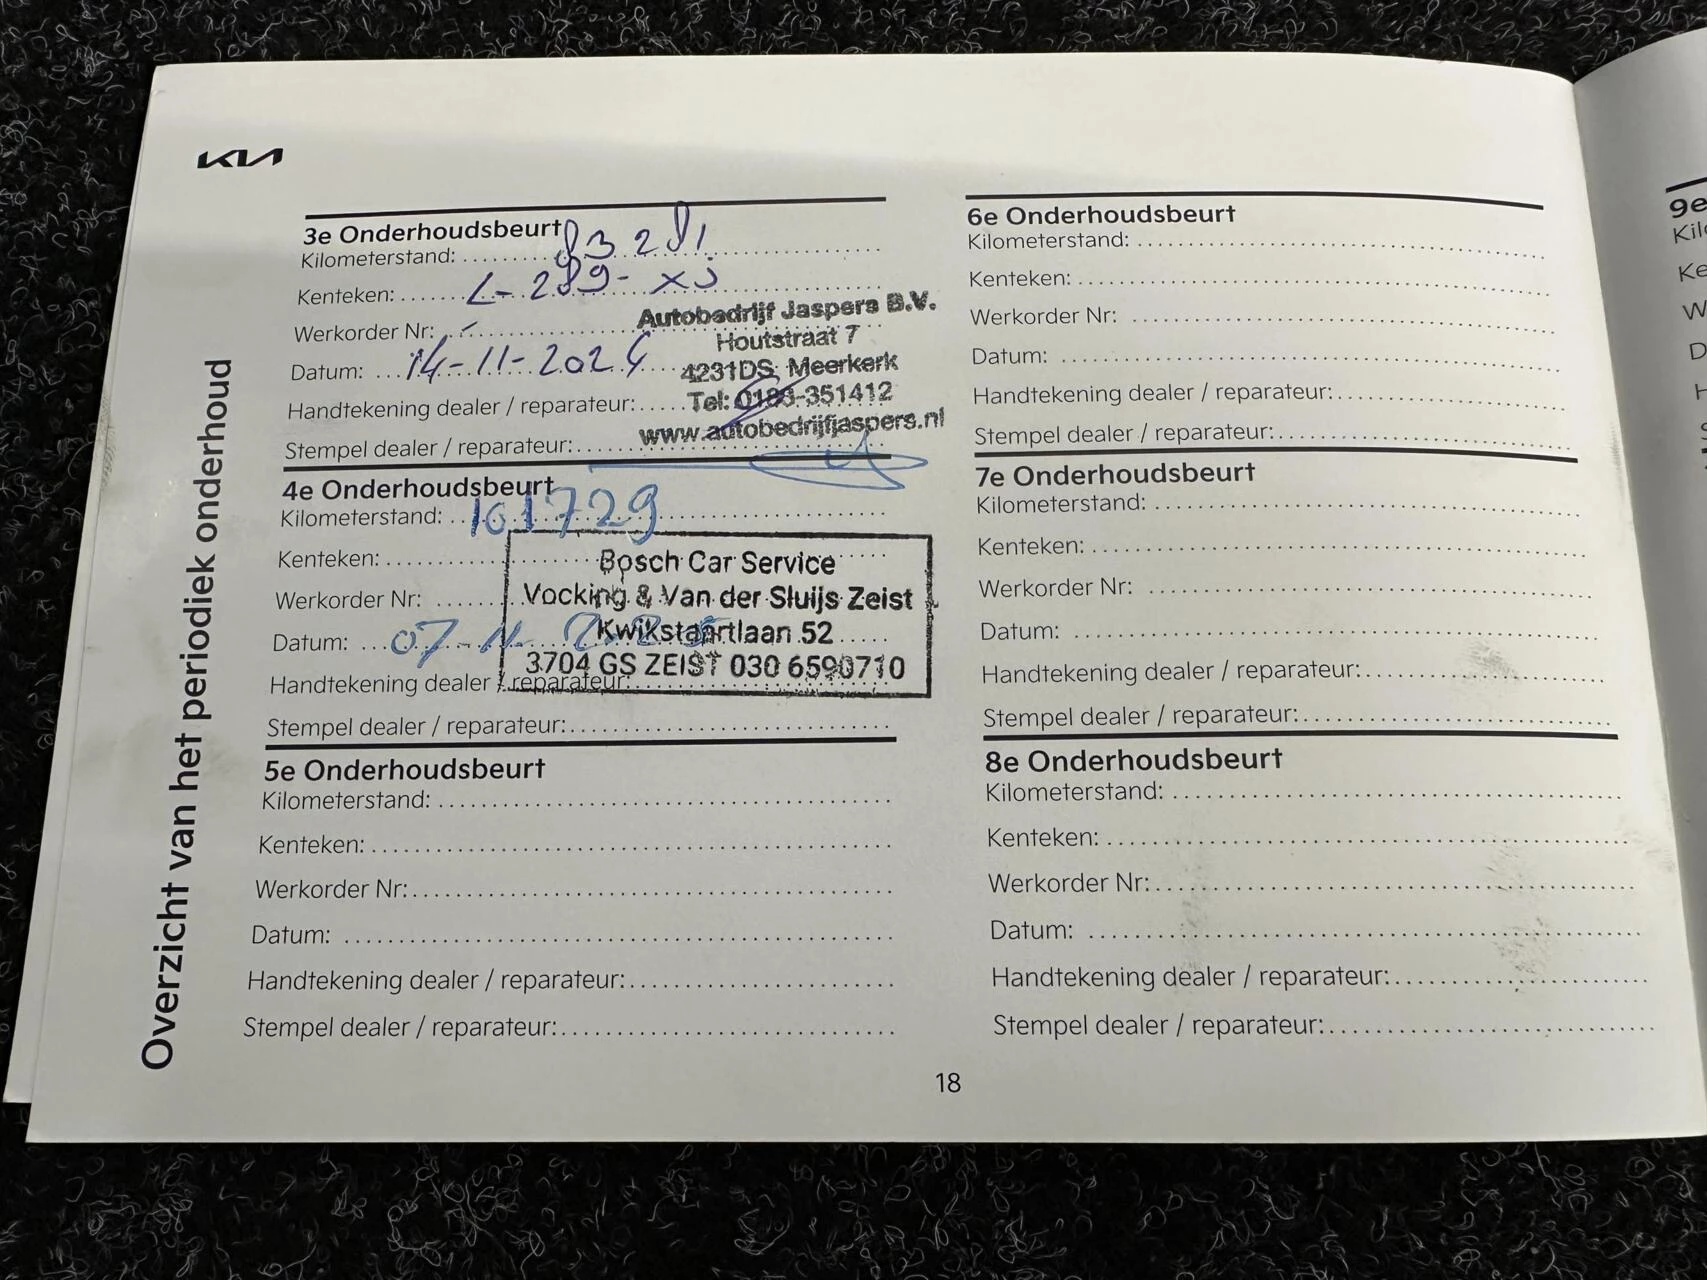 KIA
Overzicht van het periodiek onderhoud
3e Onderhoudsbeurt
Kilometerstand: 83281
Kenteken: L-289-XJ
Werkorder Nr: -
Datum: 14-11-2024
Handtekening dealer / reparateur:
Stempel dealer / reparateur:
Autobedrijf Jaspers B.V.
Houtstraat 7
4231DS Meerkerk
Tel: 0183-351412
www.autobedrijfjaspers.nl
4e Onderhoudsbeurt
Kilometerstand: 101729
Kenteken:
Werkorder Nr:
Datum: 07-11-
Handtekening dealer / reparateur:
Stempel dealer / reparateur:
Bosch Car Service
Vocking & Van der Sluijs Zeist
Kwikstaartlaan 52
3704 GS ZEIST 030 6590710
5e Onderhoudsbeurt
Kilometerstand:
Kenteken:
Werkorder Nr:
Datum:
Handtekening dealer / reparateur:
Stempel dealer / reparateur:
6e Onderhoudsbeurt
Kilometerstand:
Kenteken:
Werkorder Nr:
Datum:
Handtekening dealer / reparateur:
Stempel dealer / reparateur:
7e Onderhoudsbeurt
Kilometerstand:
Kenteken:
Werkorder Nr:
Datum:
Handtekening dealer / reparateur:
Stempel dealer / reparateur:
8e Onderhoudsbeurt
Kilometerstand:
Kenteken:
Werkorder Nr:
Datum:
Handtekening dealer / reparateur:
Stempel dealer / reparateur:
18
9e